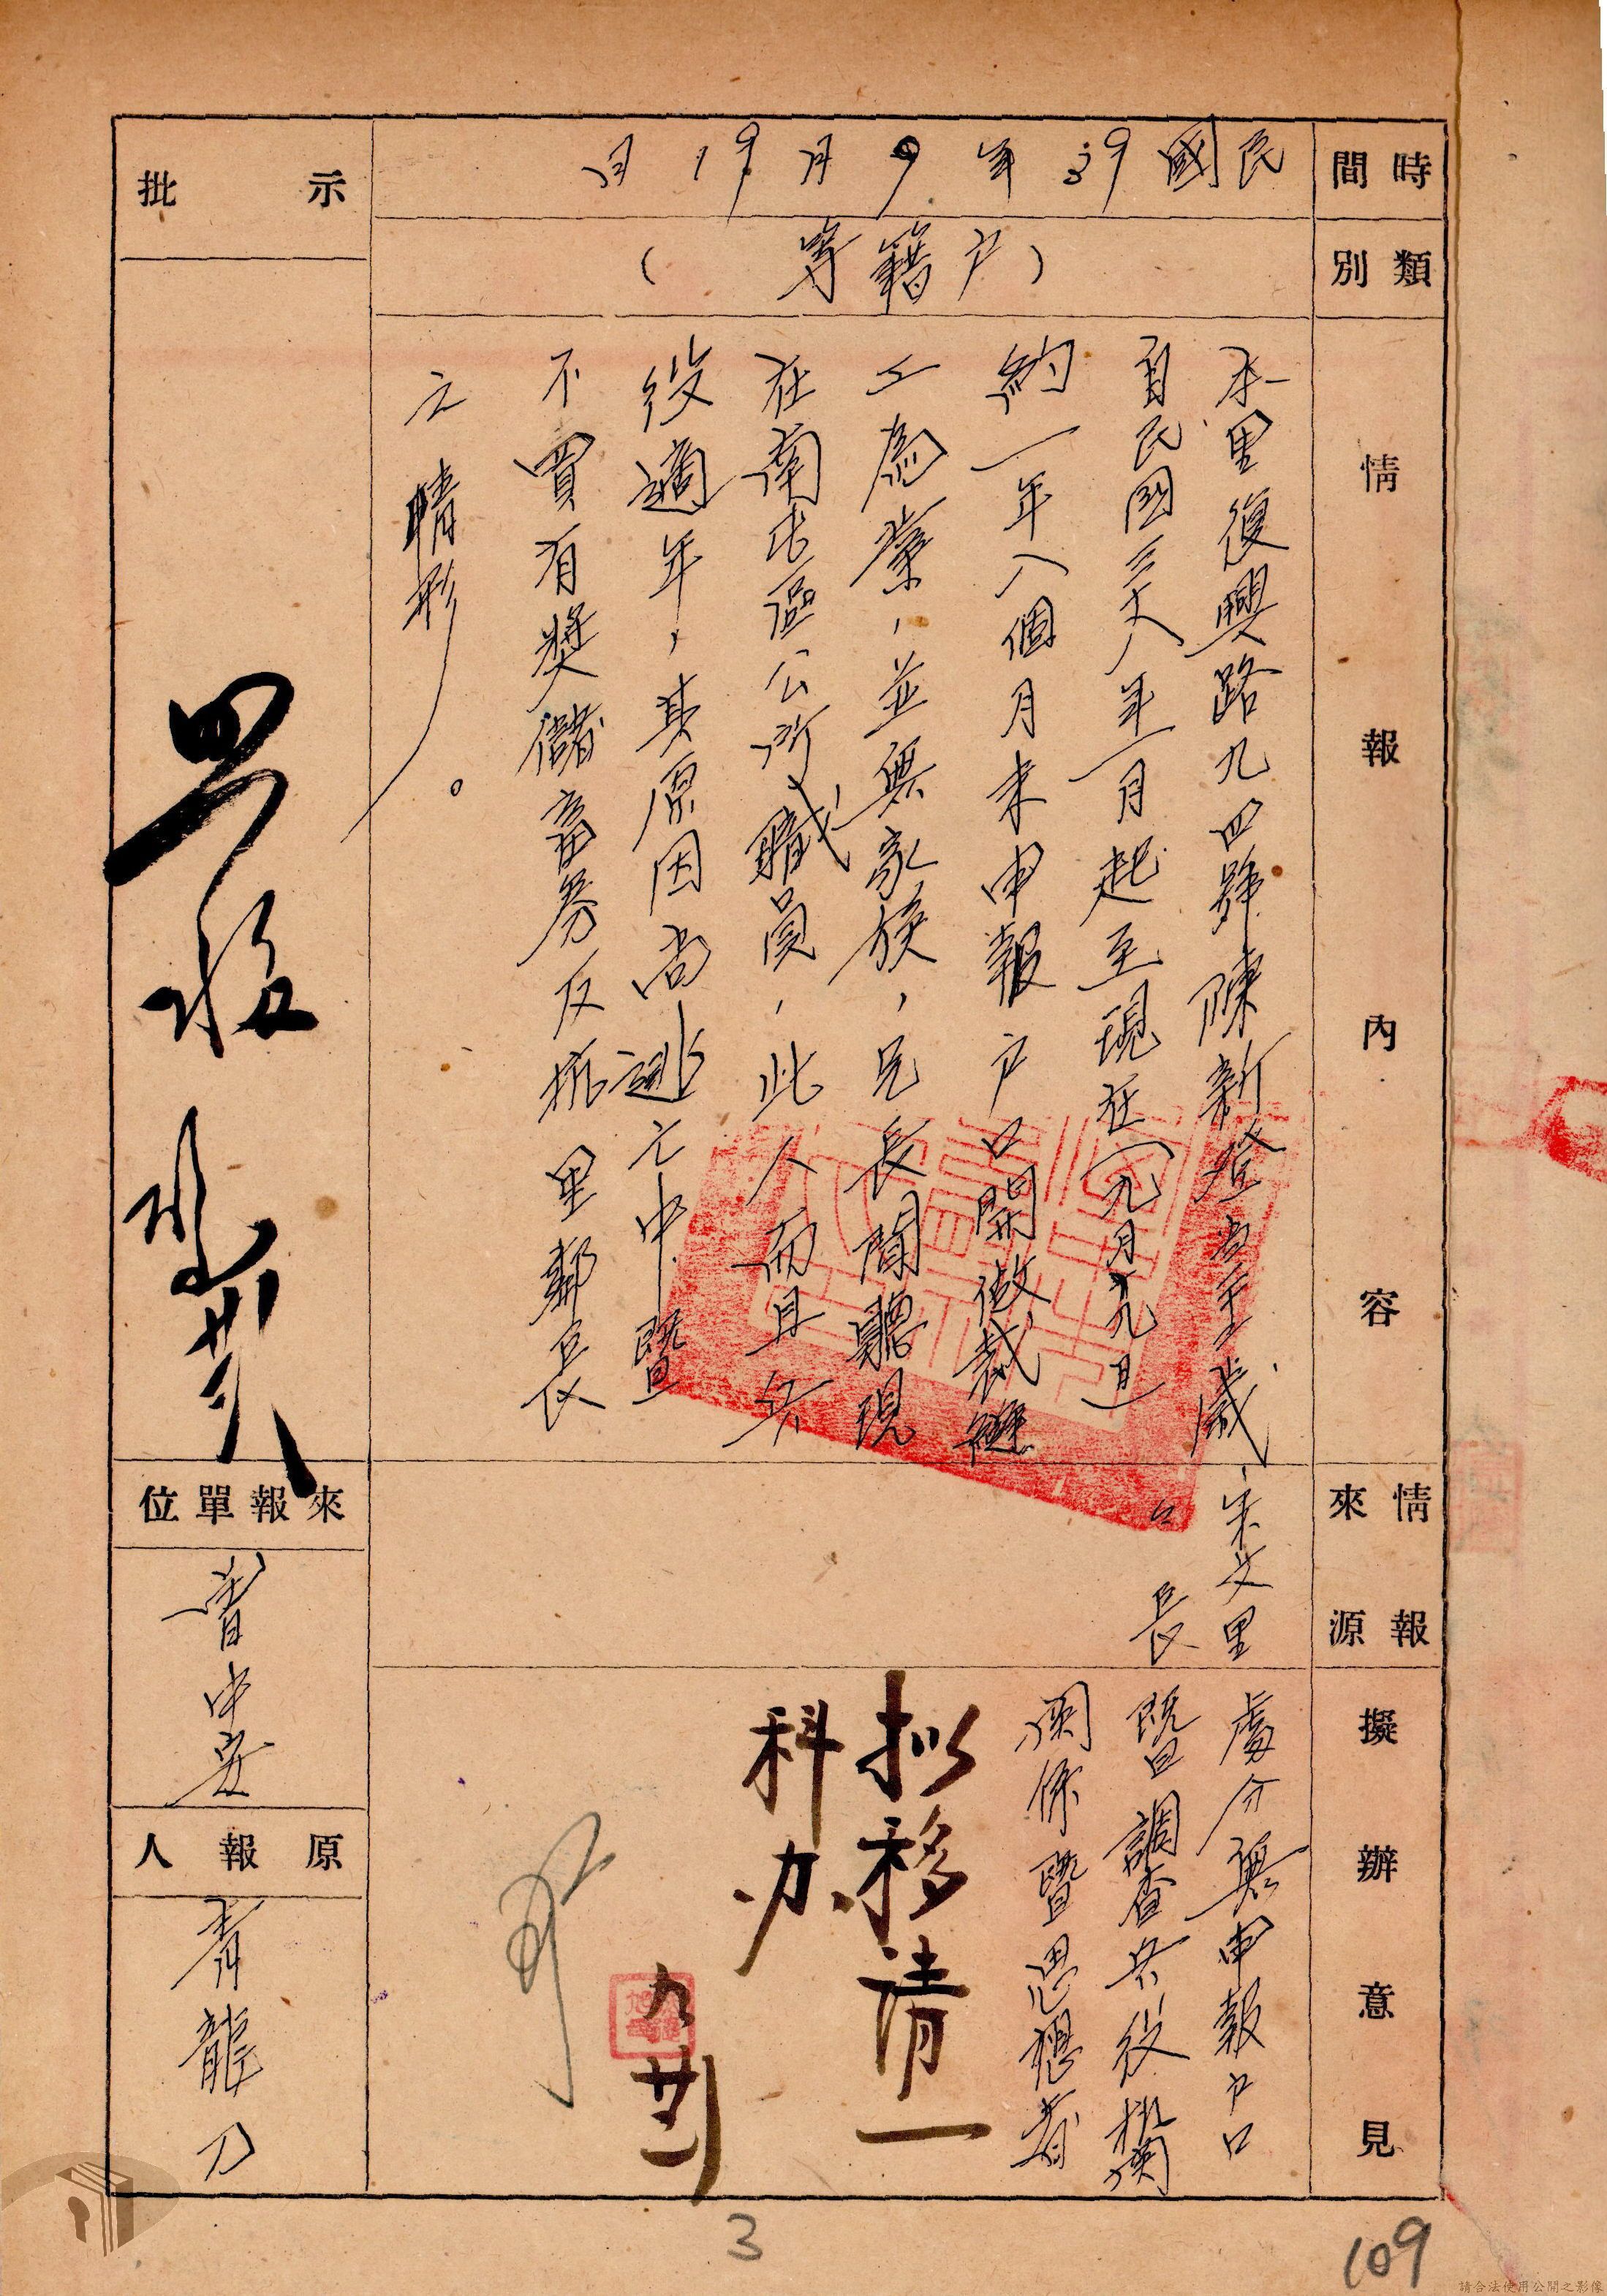 時間
民國39年9月19日
類別
（戶籍等）
情報內容
本里復興路九四號陳新登當年歲
自民國三十八年一月起至現在（九月十九日）
約一年八個月未申報戶口開做裁縫
工為業，並無家族，兄長聞聽現
在南屯區公所職員，此人而且兵
役適年，其原因尚逃亡中暨
不買有獎儲蓄券反抗里鄰長
之情形。
情報來源
宋文里
長
擬辦意見
處分無申報戶口
暨調查兵役機關
關係暨思想者
拟移请一
科办
九廿一
批示
來報單位
原報人
青龍刀
3
109
請合法使用公開之影像